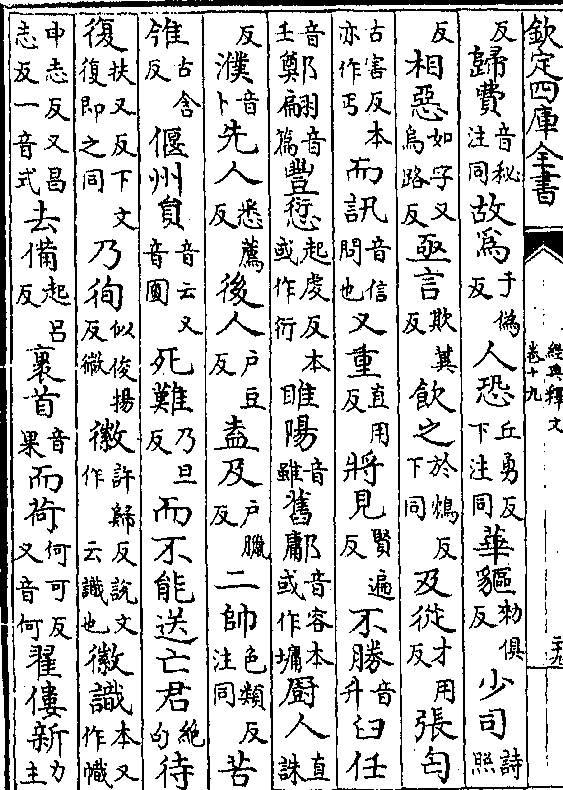 欽定四庫全書
經典釋文
卷十九
反歸費音秘注同故為于偽反人恐丘勇反下注同華貙勑俱反少司詩照
反相惡如字又烏路反亟言欺冀反飲之於鴆反下同及從才用反張匄
古害反本亦作丐而訊音信問也又重直用反將見賢遍反不勝音升臼任
音壬鄭翩音篇豐愆起虔反本或作衍睢陽音雖舊鄘音容本或作墉廚人直誅
反濮音卜先人悉薦反後人戶豆反盍及戶臘反二帥色類反注同苦
雂古含反偃州員音云又音圓死難乃旦反而不能送亡君絕句待
復扶又反下文復即之同乃徇似俊揚反微徽許歸反說文作云識也徽識本又作幟
申志反又昌志反一音式去備起呂反裹首音果而荷何可反又音何翟僂新力主